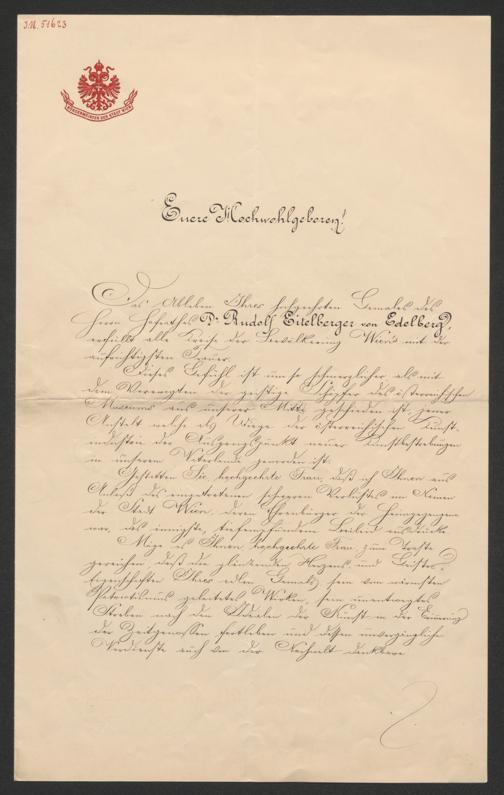 I.N. 51623
BÜRGERMEISTER DER STADT WIEN
Euere Hochwohlgeboren!
Das Ableben Ihres hochgeehrten Gemales des
Herrn Hofrathes Dr Rudolf Eitelberger von Edelberg,
erfüllt alle Kreise der Bevölkerung Wien's mit der
aufrichtigsten Trauer.
Dieses Gefühl ist um so schmerzlicher als mit
dem Verewigten der geistige Schöpfer des österreichischen
Museums aus unserer Mitte geschieden ist, jener
Anstalt welche als Wiege der österreichischen Kunst-
industrie der Ausgangspunkt neuer Kunstbestrebungen
in unserem Vaterlande geworden ist.
Gestatten Sie, hochgeehrte Frau, daß ich Ihnen aus
Anlaß des eingetretenen schweren Verlustes im Namen
der Stadt Wien, deren Ehrenbürger der Heimgegangene
war, das innigste, tiefempfundene Beileid ausdrücke.
Möge es Ihnen, hochgeehrte Frau, zum Troste
gereichen, daß die glänzenden Herzens- und Geistes-
Eigenschaften Ihres edlen Gemals, sein von wärmsten
Patriotismus geleitetes Wirken, sein unentwegtes
Streben nach den Idealen der Kunst in der Erinnerung
der Zeitgenossen fortleben und dessen unvergängliche
Verdienste auch von der Nachwelt dankbare